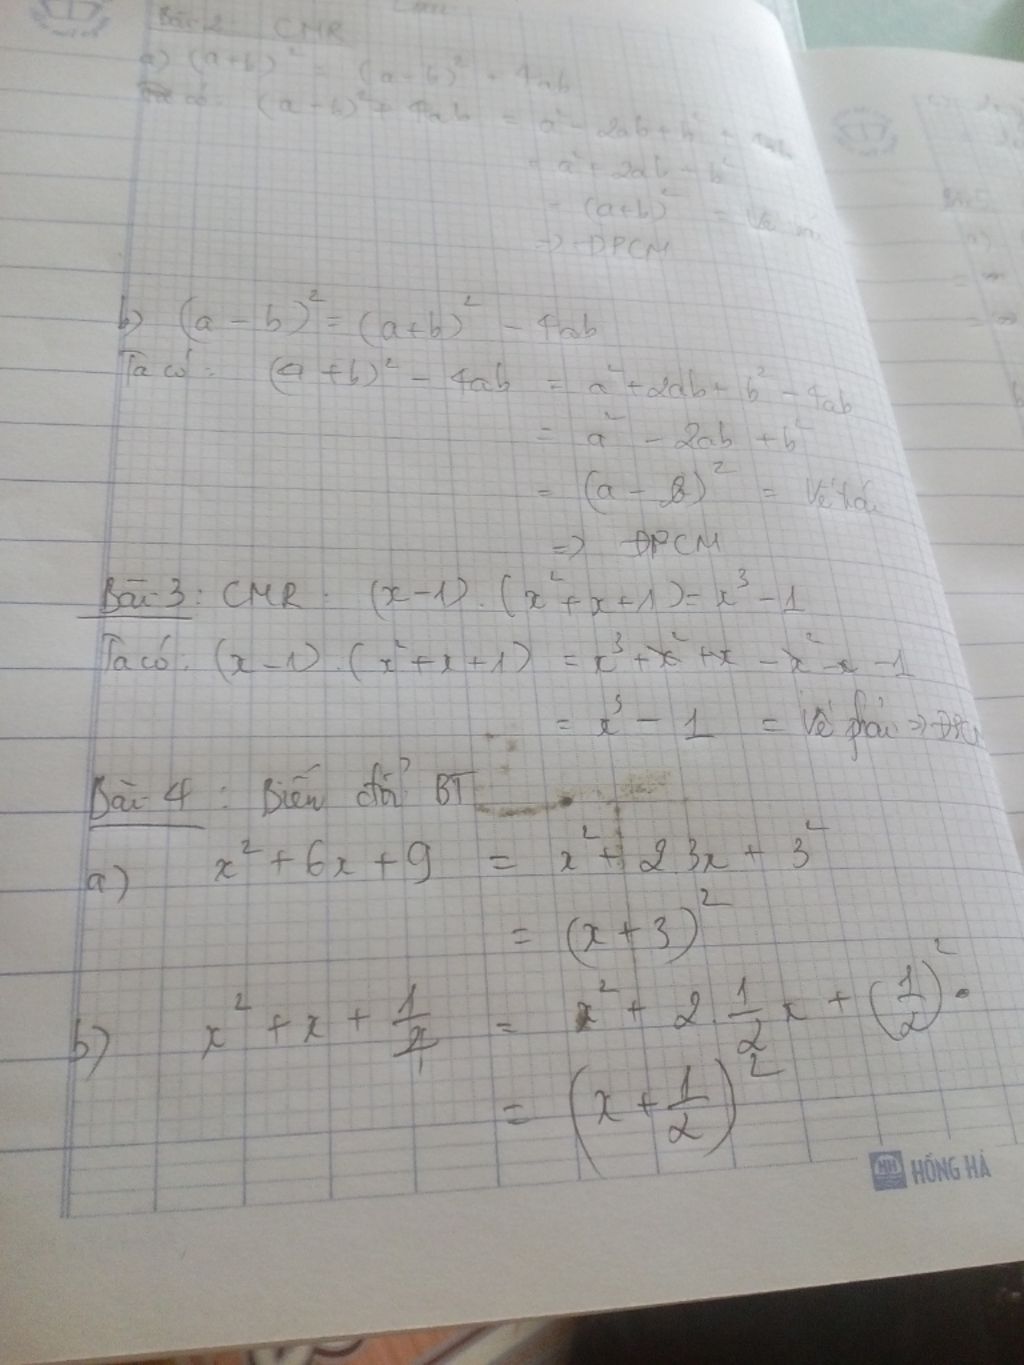 Bài 2 CMR
a) (a+b)² = (a-b)² + 4ab
Ta có: (a-b)² + 4ab = a² - 2ab + b² + 4ab
= a² + 2ab + b²
= (a+b)² = Vế
=> ĐPCM
b) (a-b)² = (a+b)² - 4ab
Ta có: (a+b)² - 4ab = a² + 2ab + b² - 4ab
= a² - 2ab + b²
= (a-b)² = Vế trái
=> ĐPCM
Bài 3: CMR: (x-1).(x²+x+1) = x³-1
Ta có: (x-1).(x²+x+1) = x³+x²+x-x²-x-1
= x³ - 1 = Vế phải => ĐPCM
Bài 4: Biến đổi BT
a) x² + 6x + 9 = x² + 2 3x + 3²
= (x+3)²
b) x² + x + 1/4 = x² + 2.1/2 x + (1/2)².
= (x + 1/2)²
HH HỒNG HÀ